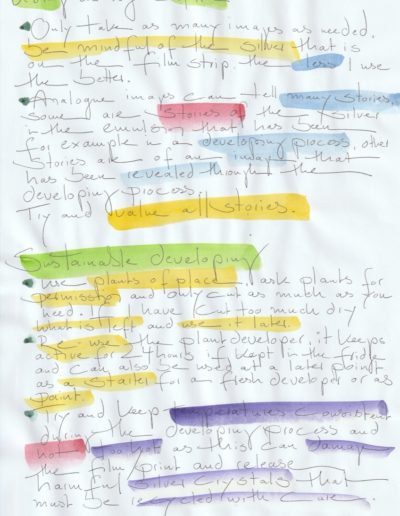 Only take as many images as needed.
be mindful of the silver that is
on the film strip. the less I use
the better.
Analogue images can tell many stories.
Some are stories of the silver
in the emulsion that has been
for example in a developing process, other
stories are of an image that
has been revealed throughout the
developing process.
Try and value all stories.
Sustainable developing
Use plants of place. ask plants for
permission and only cut as much as you
need. If I have cut too much dry
what is left and use it later.
Re-use the plant developer, it keeps
active for 24 hours if kept in the fridge
and can also be used at a later point
as a starter for a fresh developer or as
paint.
Try and keep temperatures consistent
during the developing process and
not too hot as this can damage
the film/print and release
harmful silver crystals that
must be recycled with care.